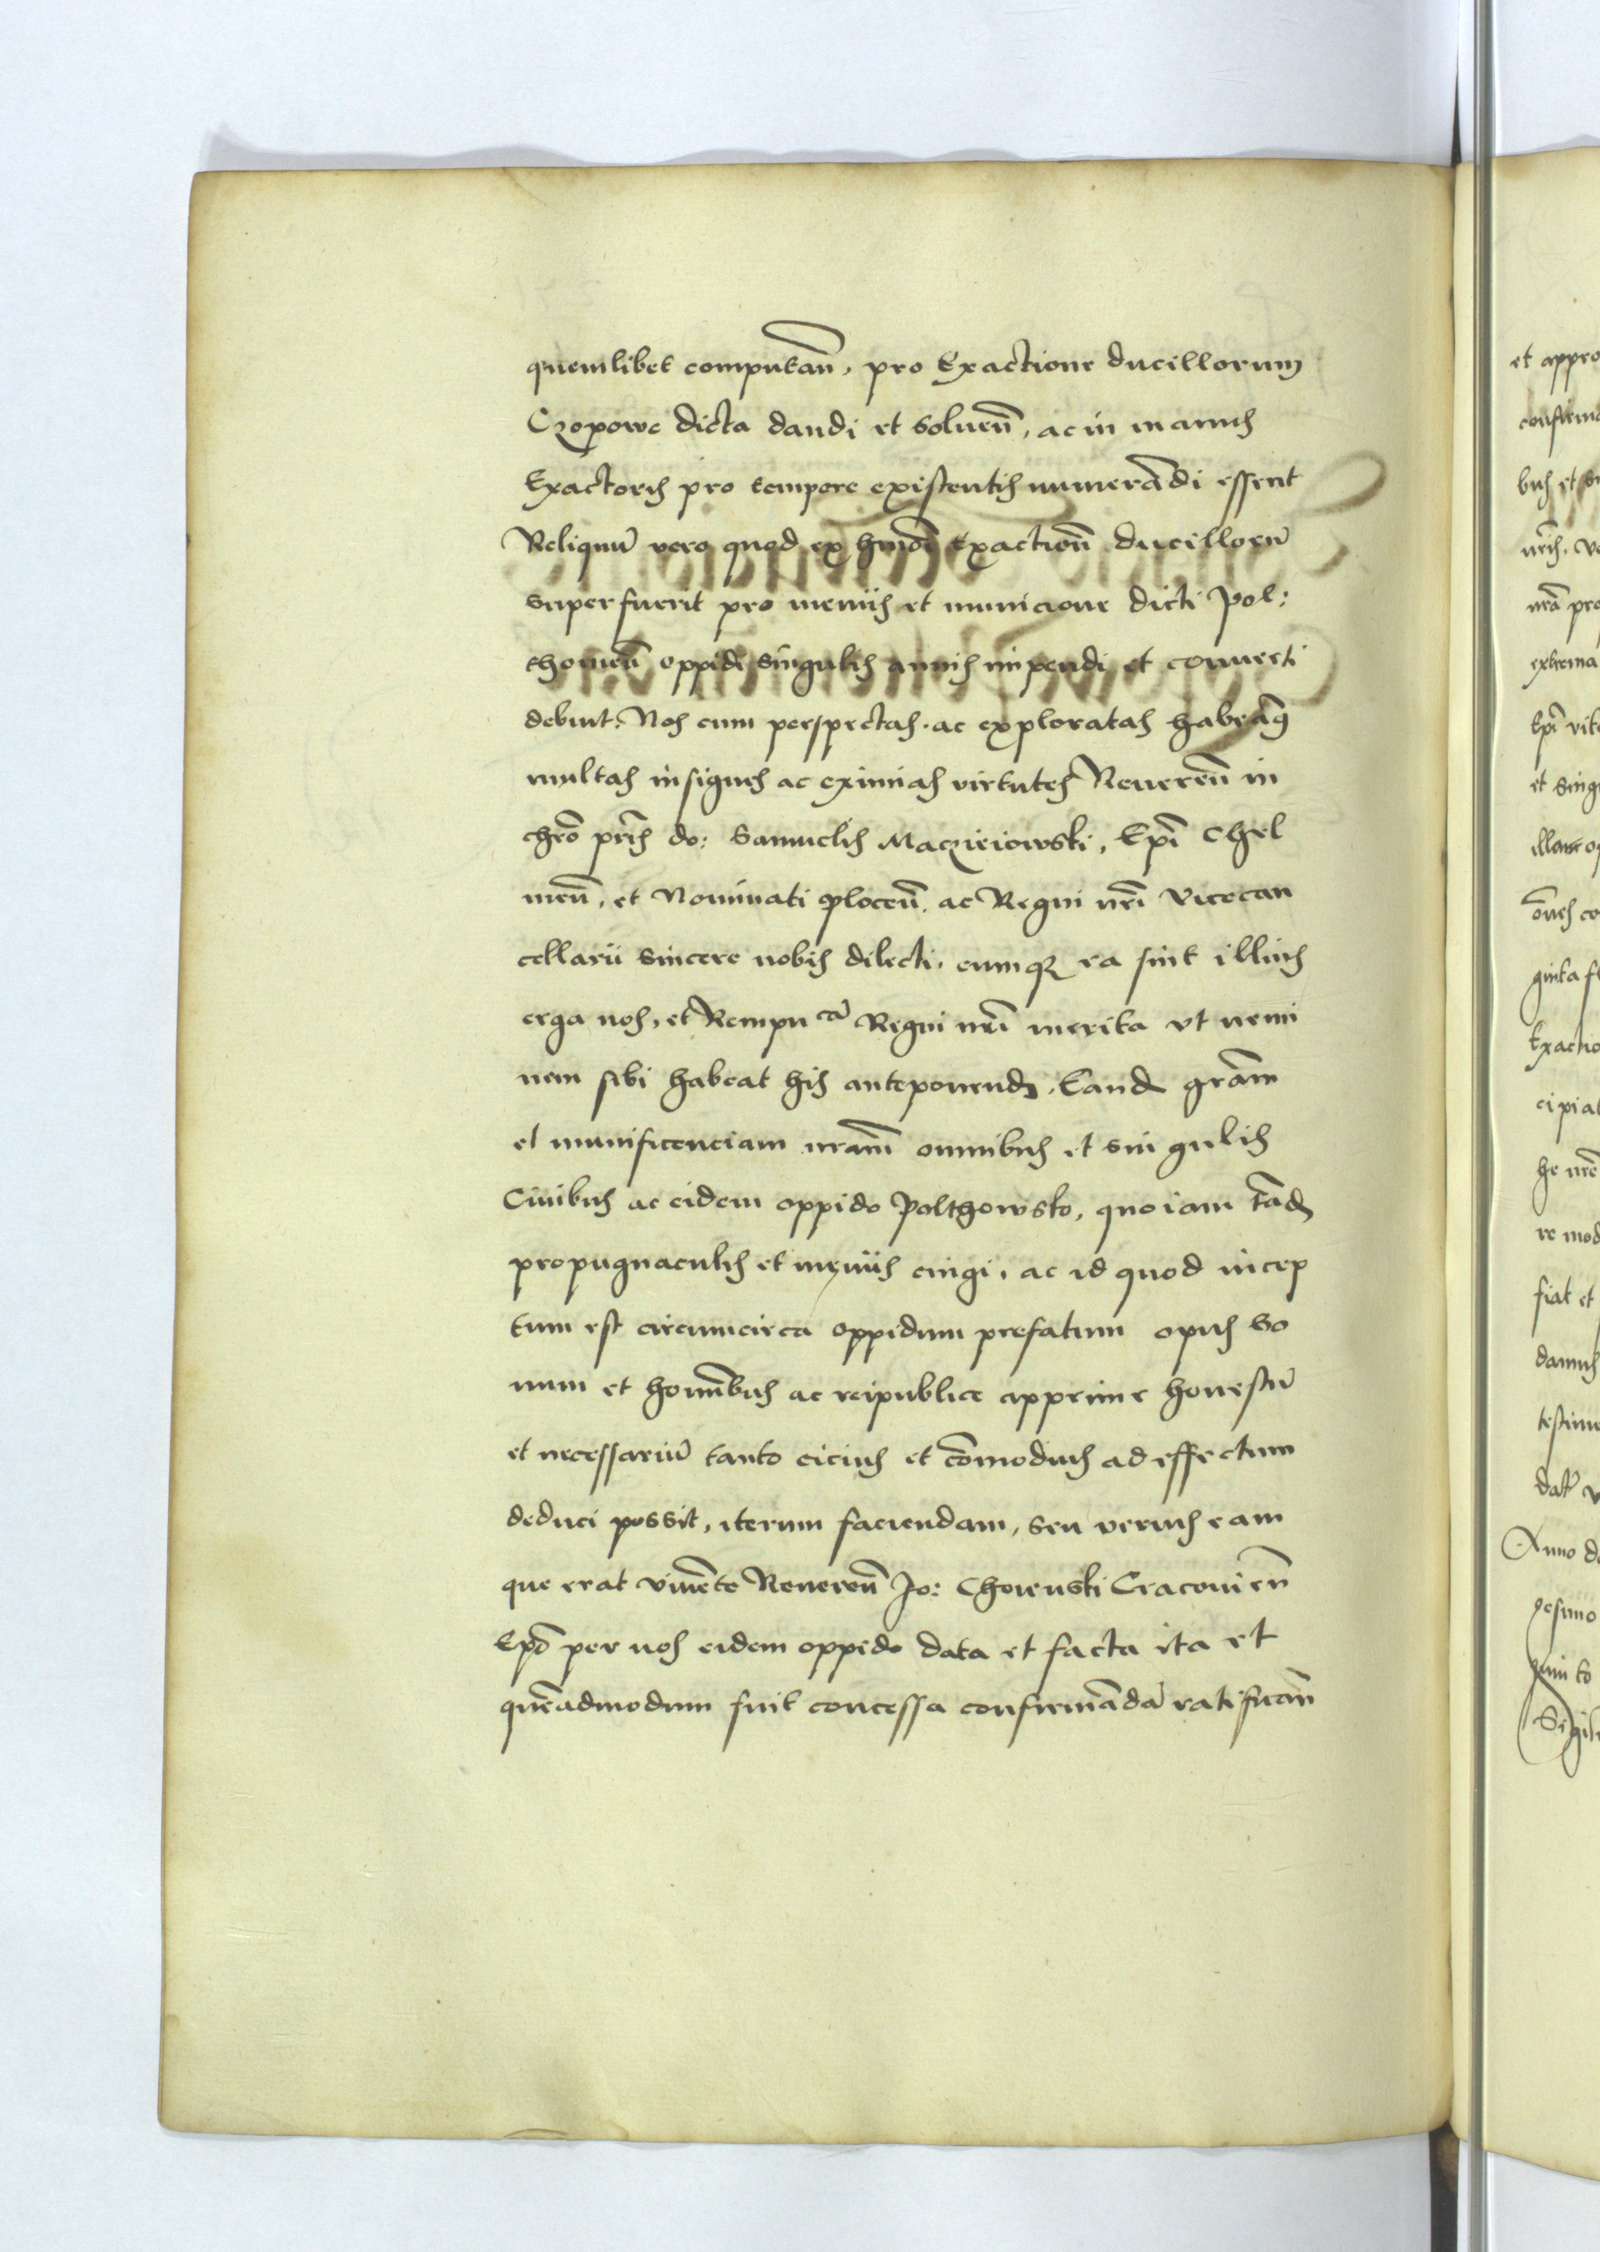 quemlibet computan̄, pro Exactione ducillorum
Czopowe dicta dandi et soluen̄, ac in manus
Exactoris pro tempore existentis numerādi essent
Reliquū vero quod ex hmōi Exaction̄ ducillorū
superfuerit pro meniis et municione dicti Pol:
thowien̄ oppidi singulis annis impendi et conuerti
debuit: Nos cum perspectas ac exploratas habeamus
multas insignes ac eximias virtutes Reueren̄ in
chr̄o pr̄is do: Samuelis Maczieiowski, Ep̄i Chel
men̄, et Nominati plocen̄, ac Regni nr̄i Vicecan
cellarii sincere nobis dilecti, eumqȝ ea sint illius
erga nos, et Rempu cā Regni nr̄i merita vt nemi
nem sibi habeat his anteponend. Eand grām
et munificenciam nram̄ omnibus et singulis
Ciuibus ac eidem oppido Polthowsko, quo iam tād
propugnaculis et meniis cingi, ac id quod incep
tum est circumcirca oppidum prefatum opus bo
num et homībus ac reipublice apprime honestū
et necessariū tanto cicius et cōmodius ad effectum
deduci possit, iterum faciendam, seu verius eam
que erat viuēte Reueren̄ Jo: Choienski Cracouien̄
Ep̄o per nos eidem oppido data et facta ita et
quēadmodum fuit concessa confirmādā ratifican̄
et appro
confirma
nr̄is, ve
nr̄a pro
extrema
Ep̄i vite
et singu
Exactio
cipiat
fiat et
damus
testimo
dat̄
Anno do
gesimo
quinto
Sigil